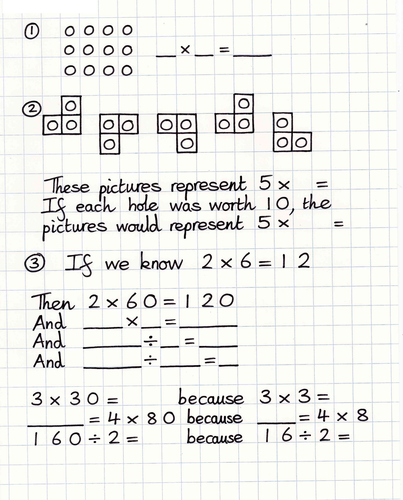 ① __ × __ = ____
②
These pictures represent 5 × =
If each hole was worth 10, the
pictures would represent 5 × =
③ If we know 2 × 6 = 12
Then 2 × 60 = 120
And ____ × __ = ______
And ______ ÷ __ = ____
And ______ ÷ ____ = __
3 × 30 = because 3 × 3 =
______ = 4 × 80 because ____ = 4 × 8
160 ÷ 2 = because 16 ÷ 2 =